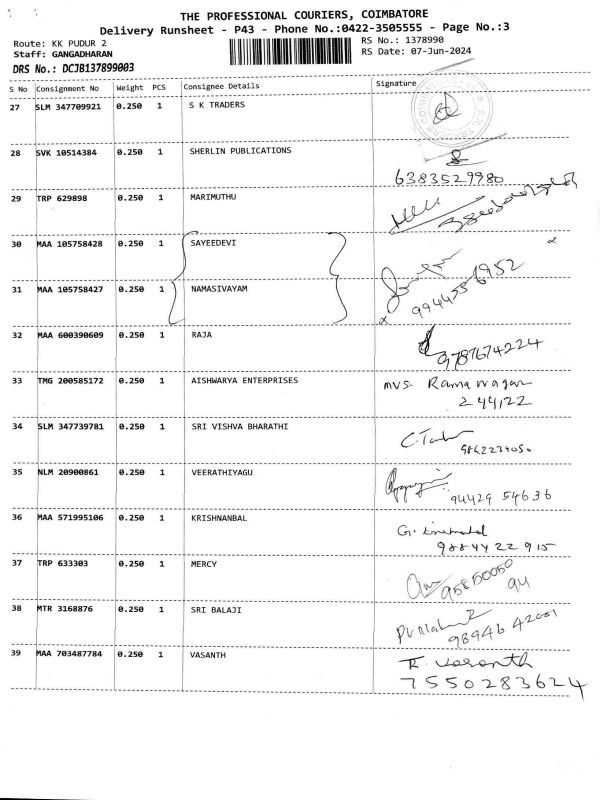 THE PROFESSIONAL COURIERS, COIMBATORE
Delivery Runsheet - P43 - Phone No.:0422-3505555 - Page No.:3
Route: KK PUDUR 2
RS No.: 1378990
Staff: GANGADHARAN
RS Date: 07-Jun-2024
DRS No.: DCJB137899003
S No Consignment No Weight PCS Consignee Details Signature
27 SLM 347709921 0.250 1 S K TRADERS
28 SVK 10514384 0.250 1 SHERLIN PUBLICATIONS
6383529980
29 TRP 629898 0.250 1 MARIMUTHU
30 MAA 105758428 0.250 1 SAYEEDEVI
31 MAA 105758427 0.250 1 NAMASIVAYAM
32 MAA 600390609 0.250 1 RAJA
9787674224
33 TMG 200585172 0.250 1 AISHWARYA ENTERPRISES
244122
34 SLM 347739781 0.250 1 SRI VISHVA BHARATHI
35 NLM 20900861 0.250 1 VEERATHIYAGU
94429 54636
36 MAA 571995106 0.250 1 KRISHNANBAL
G.
98844 22 915
37 TRP 633303 0.250 1 MERCY
9585005094
38 MTR 3168876 0.250 1 SRI BALAJI
39 MAA 703487784 0.250 1 VASANTH
R. Vasanth
7550283624